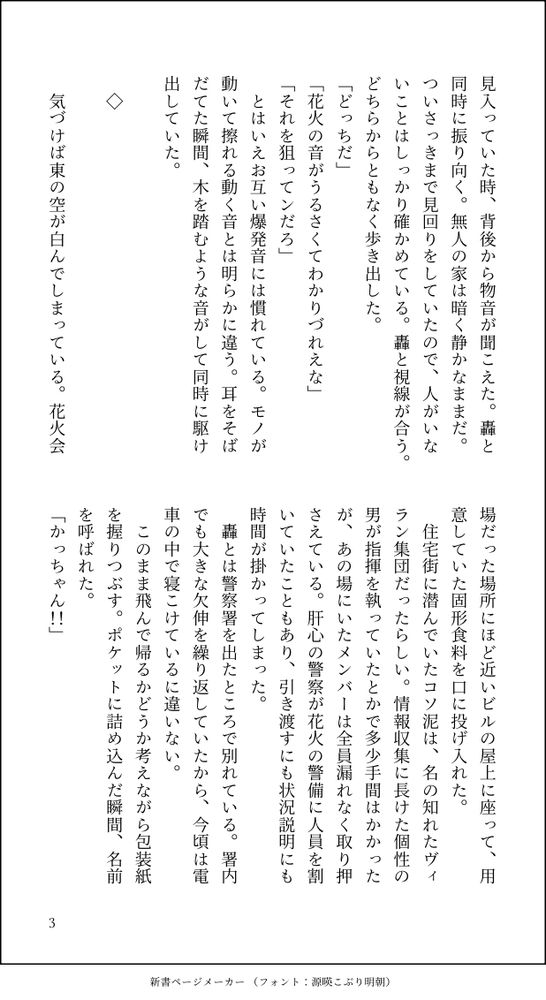 見入っていた時、背後から物音が聞こえた。轟と
同時に振り向く。無人の家は暗く静かなままだ。
ついさっきまで見回りをしていたので、人がいな
いことはしっかり確かめている。轟と視線が合う。
どちらからともなく歩き出した。
「どっちだ」
「花火の音がうるさくてわかりづれえな」
「それを狙ってンだろ」
　とはいえお互い爆発音には慣れている。モノが
動いて擦れる動く音とは明らかに違う。耳をそば
だてた瞬間、木を踏むような音がして同時に駆け
出していた。
◇
　気づけば東の空が白んでしまっている。花火会
場だった場所にほど近いビルの屋上に座って、用
意していた固形食料を口に投げ入れた。
　住宅街に潜んでいたコソ泥は、名の知れたヴィ
ラン集団だったらしい。情報収集に長けた個性の
男が指揮を執っていたとかで多少手間はかかった
が、あの場にいたメンバーは全員漏れなく取り押
さえている。肝心の警察が花火の警備に人員を割
いていたこともあり、引き渡すにも状況説明にも
時間が掛かってしまった。
　轟とは警察署を出たところで別れている。署内
でも大きな欠伸を繰り返していたから、今頃は電
車の中で寝こけているに違いない。
　このまま飛んで帰るかどうか考えながら包装紙
を握りつぶす。ポケットに詰め込んだ瞬間、名前
を呼ばれた。
「かっちゃん!!」
3
新書ページメーカー（フォント：源暎こぶり明朝）